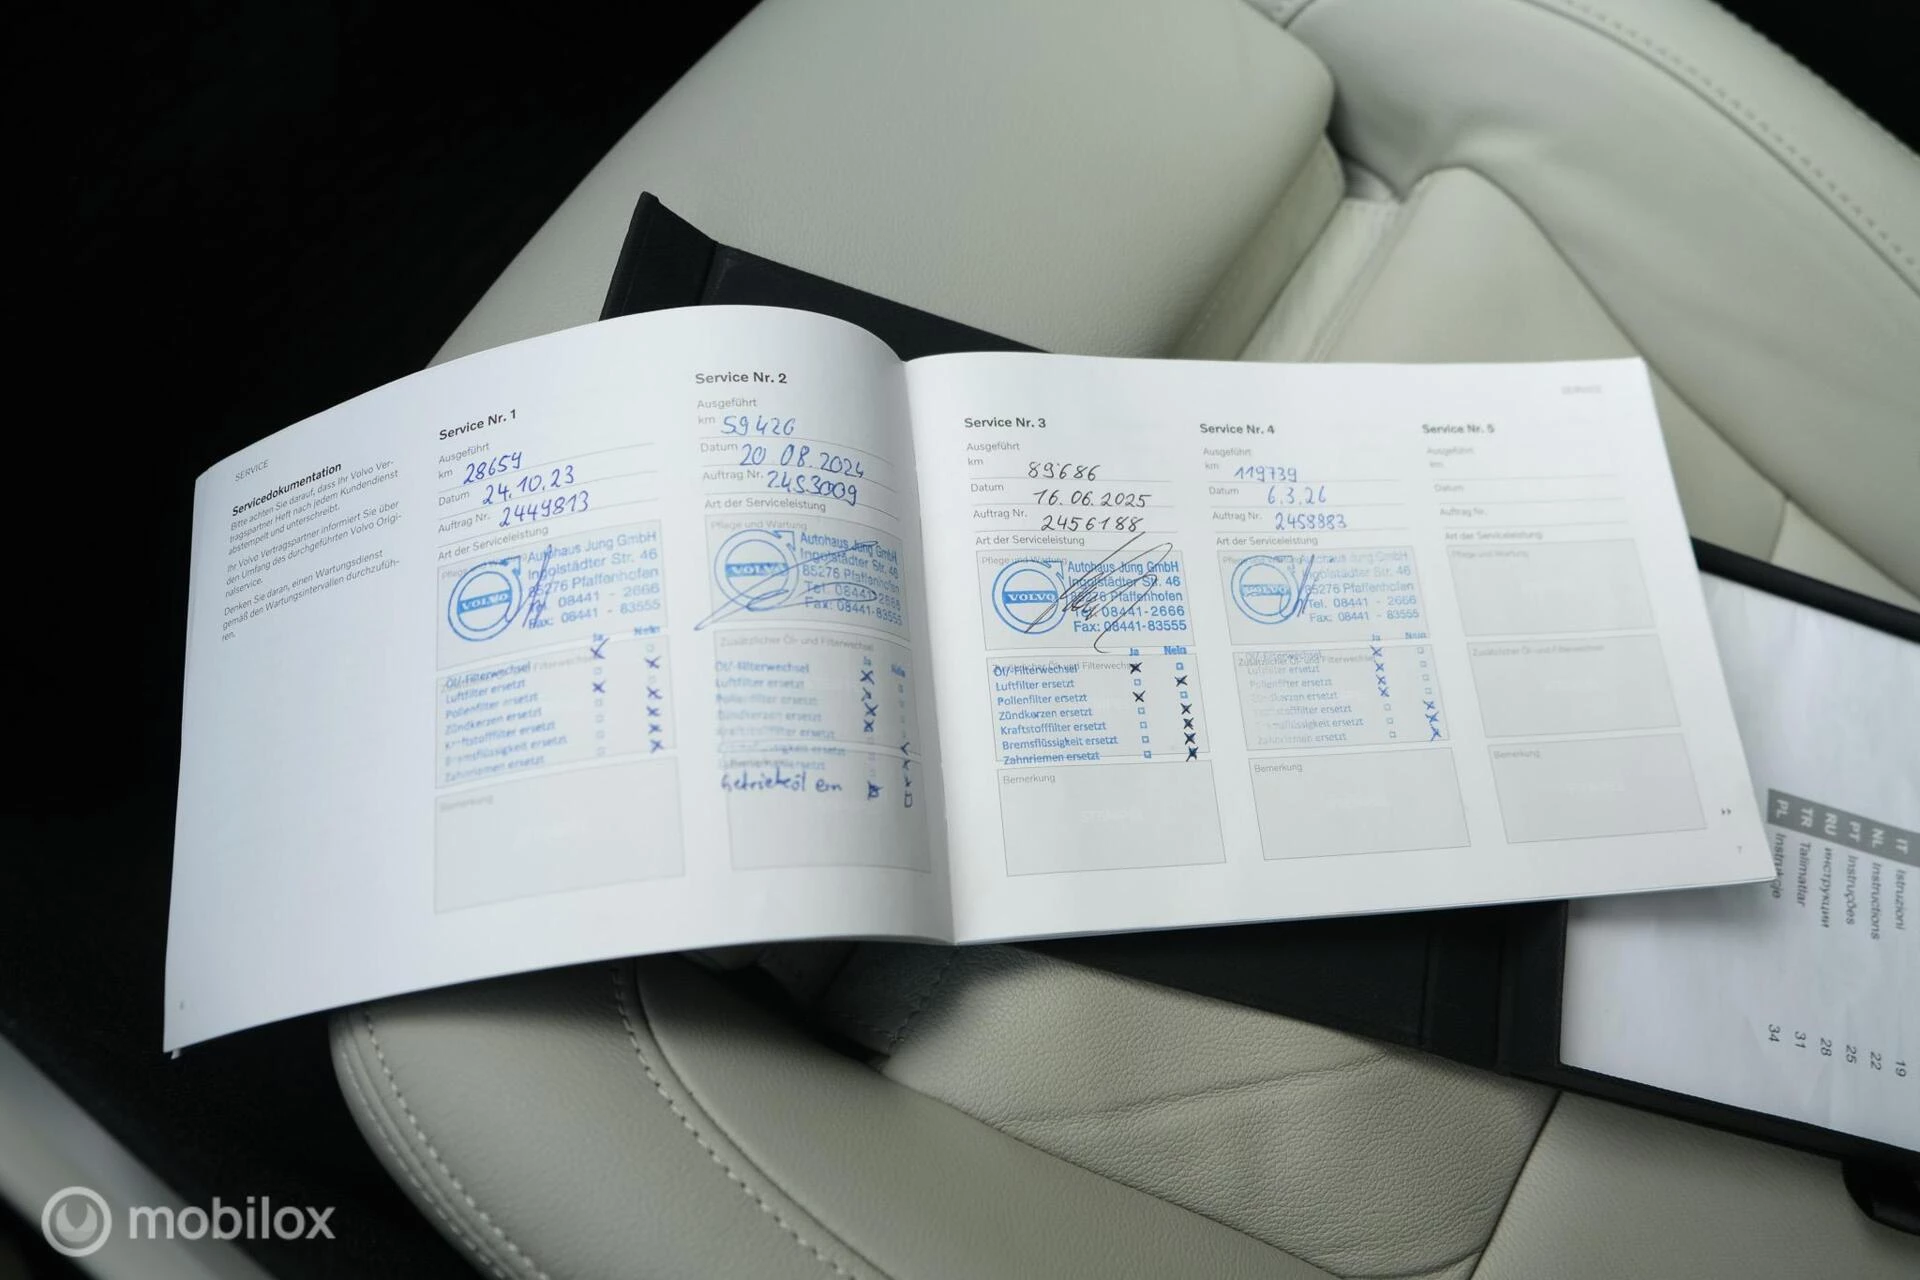 SERVICE
Servicedokumentation
Bitte achten Sie darauf, dass Ihr Volvo Ver-
tragspartner Ihr Heft nach jedem Kundendienst
abstempelt und unterschreibt.
Ihr Volvo Vertragspartner informiert Sie über
den Umfang des durchgeführten Volvo Origi-
nalservice.
Denken Sie daran, einen Wartungsdienst
gemäß den Wartungsintervallen durchzufüh-
ren.
Service Nr. 1
Ausgeführt
km 28659
Datum 24.10.23
Auftrag Nr. 2449813
Art der Serviceleistung
Pflege und Wartung
VOLVO
Autohaus Jung GmbH
Ingolstädter Str. 46
85276 Pfaffenhofen
Tel. 08441 - 2666
Fax: 08441 - 83555
Ja Nein
Öl/-Filterwechsel
Luftfilter ersetzt
Pollenfilter ersetzt
Zündkerzen ersetzt
Kraftstofffilter ersetzt
Bremsflüssigkeit ersetzt
Zahnriemen ersetzt
Bemerkung
Service Nr. 2
Ausgeführt
km 59426
Datum 20.08.2024
Auftrag Nr. 2453009
Art der Serviceleistung
Pflege und Wartung
VOLVO
Autohaus Jung GmbH
Ingolstädter Str. 46
85276 Pfaffenhofen
Tel. 08441-2666
Fax: 08441-83555
Zusätzlicher Öl- und Filterwechsel
Ja Nein
Öl/-Filterwechsel
Luftfilter ersetzt
Pollenfilter ersetzt
Zündkerzen ersetzt
Kraftstofffilter ersetzt
Getriebeöl ern
Service Nr. 3
Ausgeführt
km 89686
Datum 16.06.2025
Auftrag Nr. 2456188
Art der Serviceleistung
Pflege und Wartung
VOLVO
Autohaus Jung GmbH
Ingolstädter Str. 46
85276 Pfaffenhofen
Tel. 08441-2666
Fax: 08441-83555
Ja Nein
Zusätzlicher Öl- und Filterwechsel
Öl/-Filterwechsel
Luftfilter ersetzt
Pollenfilter ersetzt
Zündkerzen ersetzt
Kraftstofffilter ersetzt
Bremsflüssigkeit ersetzt
Zahnriemen ersetzt
Bemerkung
Service Nr. 4
Ausgeführt
km 119739
Datum 6.3.26
Auftrag Nr. 2458883
Art der Serviceleistung
Pflege und Wartung
VOLVO
Autohaus Jung GmbH
Ingolstädter Str. 46
85276 Pfaffenhofen
Tel. 08441 - 2666
Fax: 08441 - 83555
Ja Nein
Zusätzlicher Öl- und Filterwechsel
Öl/-Filterwechsel
Luftfilter ersetzt
Pollenfilter ersetzt
Zündkerzen ersetzt
Kraftstofffilter ersetzt
Bremsflüssigkeit ersetzt
Zahnriemen ersetzt
Bemerkung
SERVICE
Service Nr. 5
Ausgeführt
km
Datum
Auftrag Nr.
Art der Serviceleistung
Pflege und Wartung
Zusätzlicher Öl- und Filterwechsel
Bemerkung
7
IT Istruzioni 19
NL Instructions 22
PT Instruções 25
RU инструкции 28
TR Talimatlar 31
PL 34
mobilox